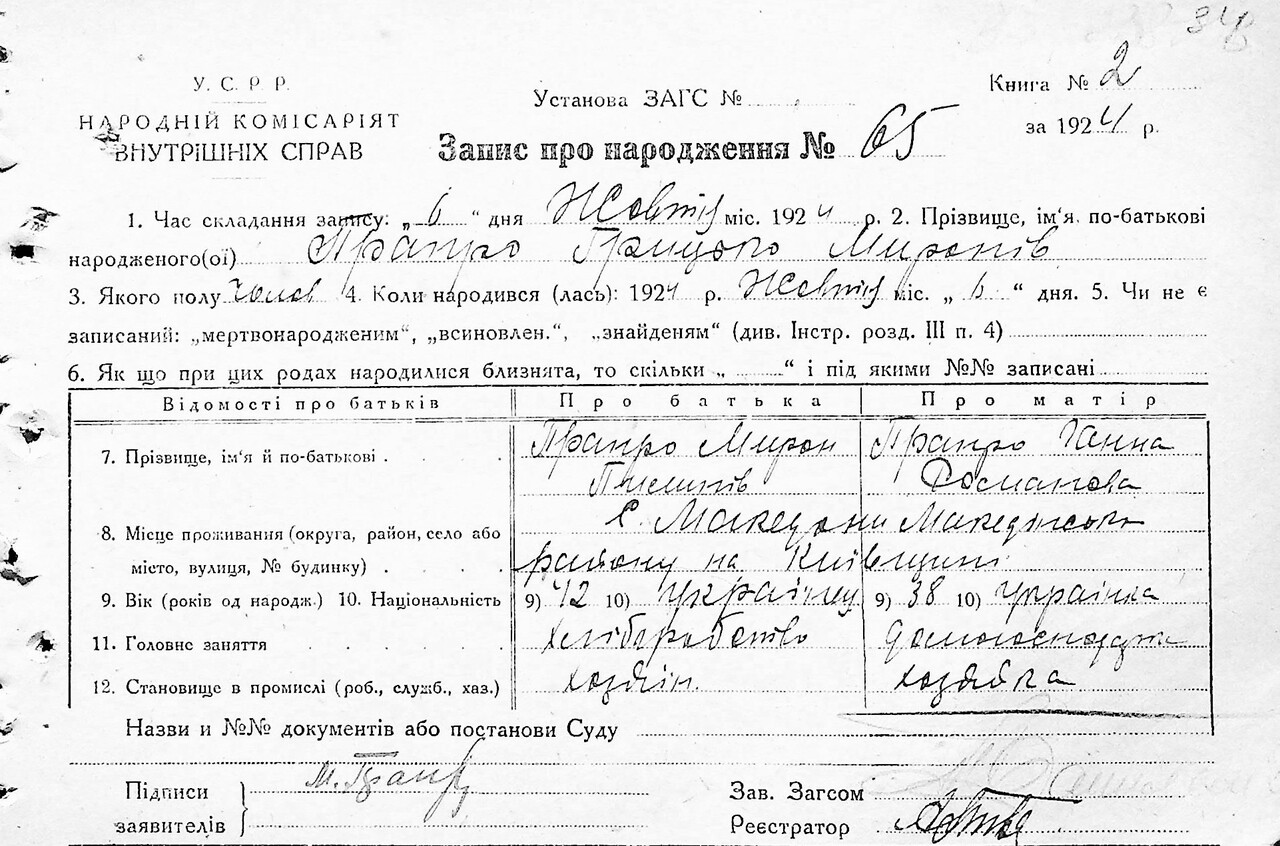 У. С. Р. Р.
НАРОДНІЙ КОМІСАРІЯТ
ВНУТРІШНІХ СПРАВ
Установа ЗАГС №
Книга № 2
за 1924 р.
Запис про народження № 65
1. Час складання запису: „ 6 “ дня Жовтня міс. 1924 р. 2. Прізвище, ім'я, по-батькові
народженого(ої) Прапро Грицько Миронів
3. Якого полу Чолов 4. Коли народився (лась): 1924 р. Жовтня міс. „ 6 “ дня. 5. Чи не є
записаний: „мертвонародженим“, „всиновлен.“, „знайденям“ (див. Інстр. розд. III п. 4)
6. Як що при цих родах народилися близнята, то скільки „ “ і під якими №№ записані
Відомості про батьків Про батька Про матір
7. Прізвище, ім'я й по-батькові . . . Прапро Мирон Прапро Ганна
Пилипів Романова
8. Місце проживання (округа, район, село або с. Македони Македонського
місто, вулиця, № будинку) . . . . району на Київщині
9. Вік (років од народж.) 10. Національність 9) 42 10) Українец 9) 38 10) Українка
11. Головне заняття . . . . . хліборобство
12. Становище в промислі (роб., служб., хаз.) хозяїн. хозяйка
Назви и №№ документів або постанови Суду
Підписи
заявителів
Зав. Загсом
Реєстратор